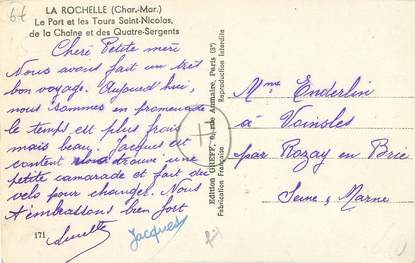 6f
LA ROCHELLE (Char.-Mar.)
Le Port et les Tours Saint-Nicolas,
de la Chaîne et des Quatre-Sergents
Chère Petite mère
Nous avons fait un très
bon voyage. Aujourd'hui,
nous sommes en promenade
le temps est plus frais
mais beau. Jacques est
content trouvé une
petite camarade et fait du
vélo pour changer. Nous
t'embrassons bien fort
171
Jacques
Edition GREFF, Rue Aumaire, Paris (3e)
Fabrication Française
Reproduction Interdite
H
Mme Enderlin
à Voinsles
par Rozay en Brie
Seine & Marne